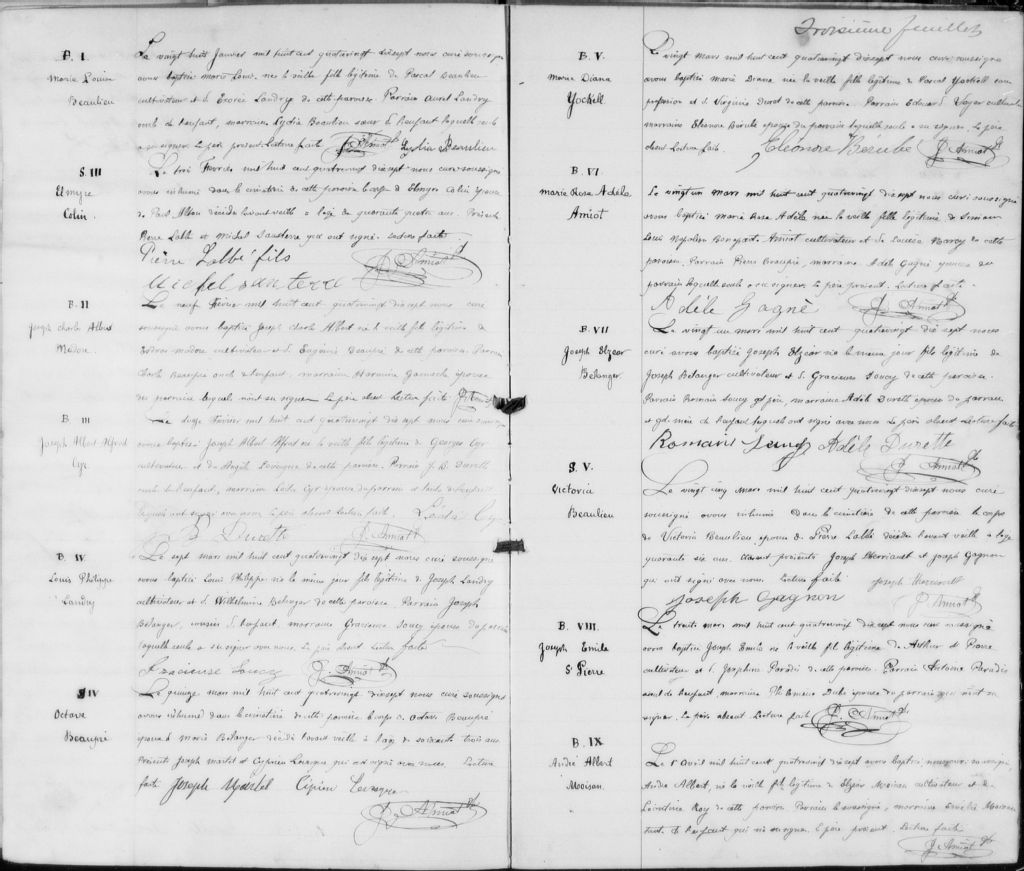 B. I
Marie Louise
Beaulieu
Le vingt huit Janvier mil huit cent quatrevingt dixsept nous curé soussigné
avons baptisé Marie Louise née la veille fille légitime de Pascal Beaulieu
cultivateur et d Exorée Landry de cette paroisse. Parrain Landry
oncle de l'enfant, marraine Lydia Beaulieu sœur de l'enfant laquelle seule
a su signer. Le père présent. Lecture faite J. Amiot Ptr
Lydia Beaulieu
S. III
Elmyre
Colin
Le trois Février mil huit cent quatrevingt dixsept nous curé soussigné
avons inhumé dans le cimetière de cette paroisse le corps de Colin épouse
de Paul décédée l'avant veille à l'âge de quarante quatre ans. Présents
Pierre Labbé et Michel Santerre qui ont signé. Lecture faite
Pierre Labbé fils
Michel Santerre
J. Amiot Ptr
B. II
Joseph Charles Albert
Le neuf Février mil huit cent quatrevingt dixsept nous curé
soussigné avons baptisé Joseph Charles Albert né la veille fils légitime de
cultivateur et d Eugénie Beaupré de cette paroisse. Parrain
Charles Beaupré oncle de l'enfant, marraine Gamache épouse
du parrain lesquels n'ont su signer. Le père absent Lecture faite J. Amiot
B. III
Joseph Albert Alfred
Cyr
Le Février mil huit cent quatrevingt dix sept nous curé soussigné
avons baptisé Joseph Albert Alfred né la veille fils légitime de Georges Cyr
cultivateur et de Angèle Levesque de cette paroisse. Parrain J. B. Durette
oncle de l'enfant, marraine Cyr épouse du parrain et tante de l'enfant
lesquels ont signé avec nous. Le père absent Lecture faite. Cyr
B Durette J. Amiot Ptr
B. IV
Louis Philippe
Landry
Le sept Mars mil huit cent quatrevingt dix sept nous curé soussigné
avons baptisé Louis Philippe né le même jour fils légitime de Joseph Landry
cultivateur et d Wilhelmine Belanger de cette paroisse. Parrain Joseph
Belanger, cousin de l'enfant, marraine Gracieuse Soucy épouse du parrain
laquelle seule a su signer avec nous. Le père absent Lecture faite
Gracieuse Soucy J. Amiot Ptr
S IV
Octave
Beaupré
Le quinze Mars mil huit cent quatrevingt dixsept nous curé soussigné
avons inhumé dans le cimetière de cette paroisse le corps d Octave Beaupré
époux d Marie Belanger décédé l'avant veille à l'âge de soixante trois ans
Présents Joseph Martel et Cyprien Levesque qui ont signé avec nous. Lecture
faite Joseph Martel Ciprien Levesque
J. Amiot Ptr
Troisième feuillet
B. V.
Marie Diana
Yockell
Le vingt Mars mil huit cent quatrevingt dixsept nous curé soussigné
avons baptisé Marie Diana née la veille fille légitime de Pascal Yockell
profession et d Virginie Durot de cette paroisse. Parrain Edouard Voyer cultivateur
marraine Eléonore Bérubé épouse du parrain laquelle seule a su signer. Le père
absent Lecture faite.
Eléonore Berube J. Amiot Ptr
B. VI
Marie Rose Adèle
Amiot
Le vingt un Mars mil huit cent quatrevingt dixsept nous curé soussigné
avons baptisé Marie Rose Adèle née la veille fille légitime de Siméon
Louis Napoléon Bonaparte Amiot cultivateur et d Louisa de cette
paroisse. Parrain Pierre marraine Adèle Gagné épouse du
parrain laquelle seule a su signer. Le père présent. Lecture faite.
Adèle Gagné J. Amiot Ptr
B. VII
Joseph Elzear
Belanger
Le vingt un Mars mil huit cent quatrevingt dix sept nous
curé avons baptisé Joseph Elzéar né le même jour fils légitime de
Joseph Bélanger cultivateur et d Gracieuse Soucy de cette paroisse.
Parrain Romain Soucy gd père, marraine Adèle Durette épouse du parrain
et gd mère de l'enfant lesquels ont signé avec nous. Le père absent Lecture faite
Romain Soucy Adèle Durette
J. Amiot Ptr
S. V.
Victoria
Beaulieu
Le vingt cinq Mars mil huit cent quatrevingt dixsept nous curé
soussigné avons inhumé dans le cimetière de cette paroisse le corps
de Victoria Beaulieu épouse de Pierre Labbé décédée l'avant veille à l'âge
quarante six ans. Etaient présents Joseph Therriault et Joseph Gagnon
qui ont signé avec nous. Lecture faite Joseph Therriault
Joseph Gagnon J. Amiot Ptr
B. VIII.
Joseph Emile
St Pierre
Le trente Mars mil huit cent quatrevingt dix sept nous curé soussigné
avons baptisé Joseph Emile né la veille fils légitime de Arthur St Pierre
cultivateur et d Josephine Paradis de cette paroisse. Parrain Antoine Paradis
aïeul de l'enfant, marraine Dubé épouse du parrain qui n'ont su
signer. Le père absent Lecture faite J. Amiot Ptr
B. IX
André Albert
Moisan
Le 1er Avril mil huit cent quatrevingt dixsept avons baptisé nous curé soussigné,
André Albert, né la veille fils légitime de Elzéar Moisan cultivateur et de
Léontine Roy de cette paroisse Parrain le soussigné, marraine Moisan
tante de l'enfant qui n'a su signer. Le père présent. Lecture faite
J. Amiot Ptr